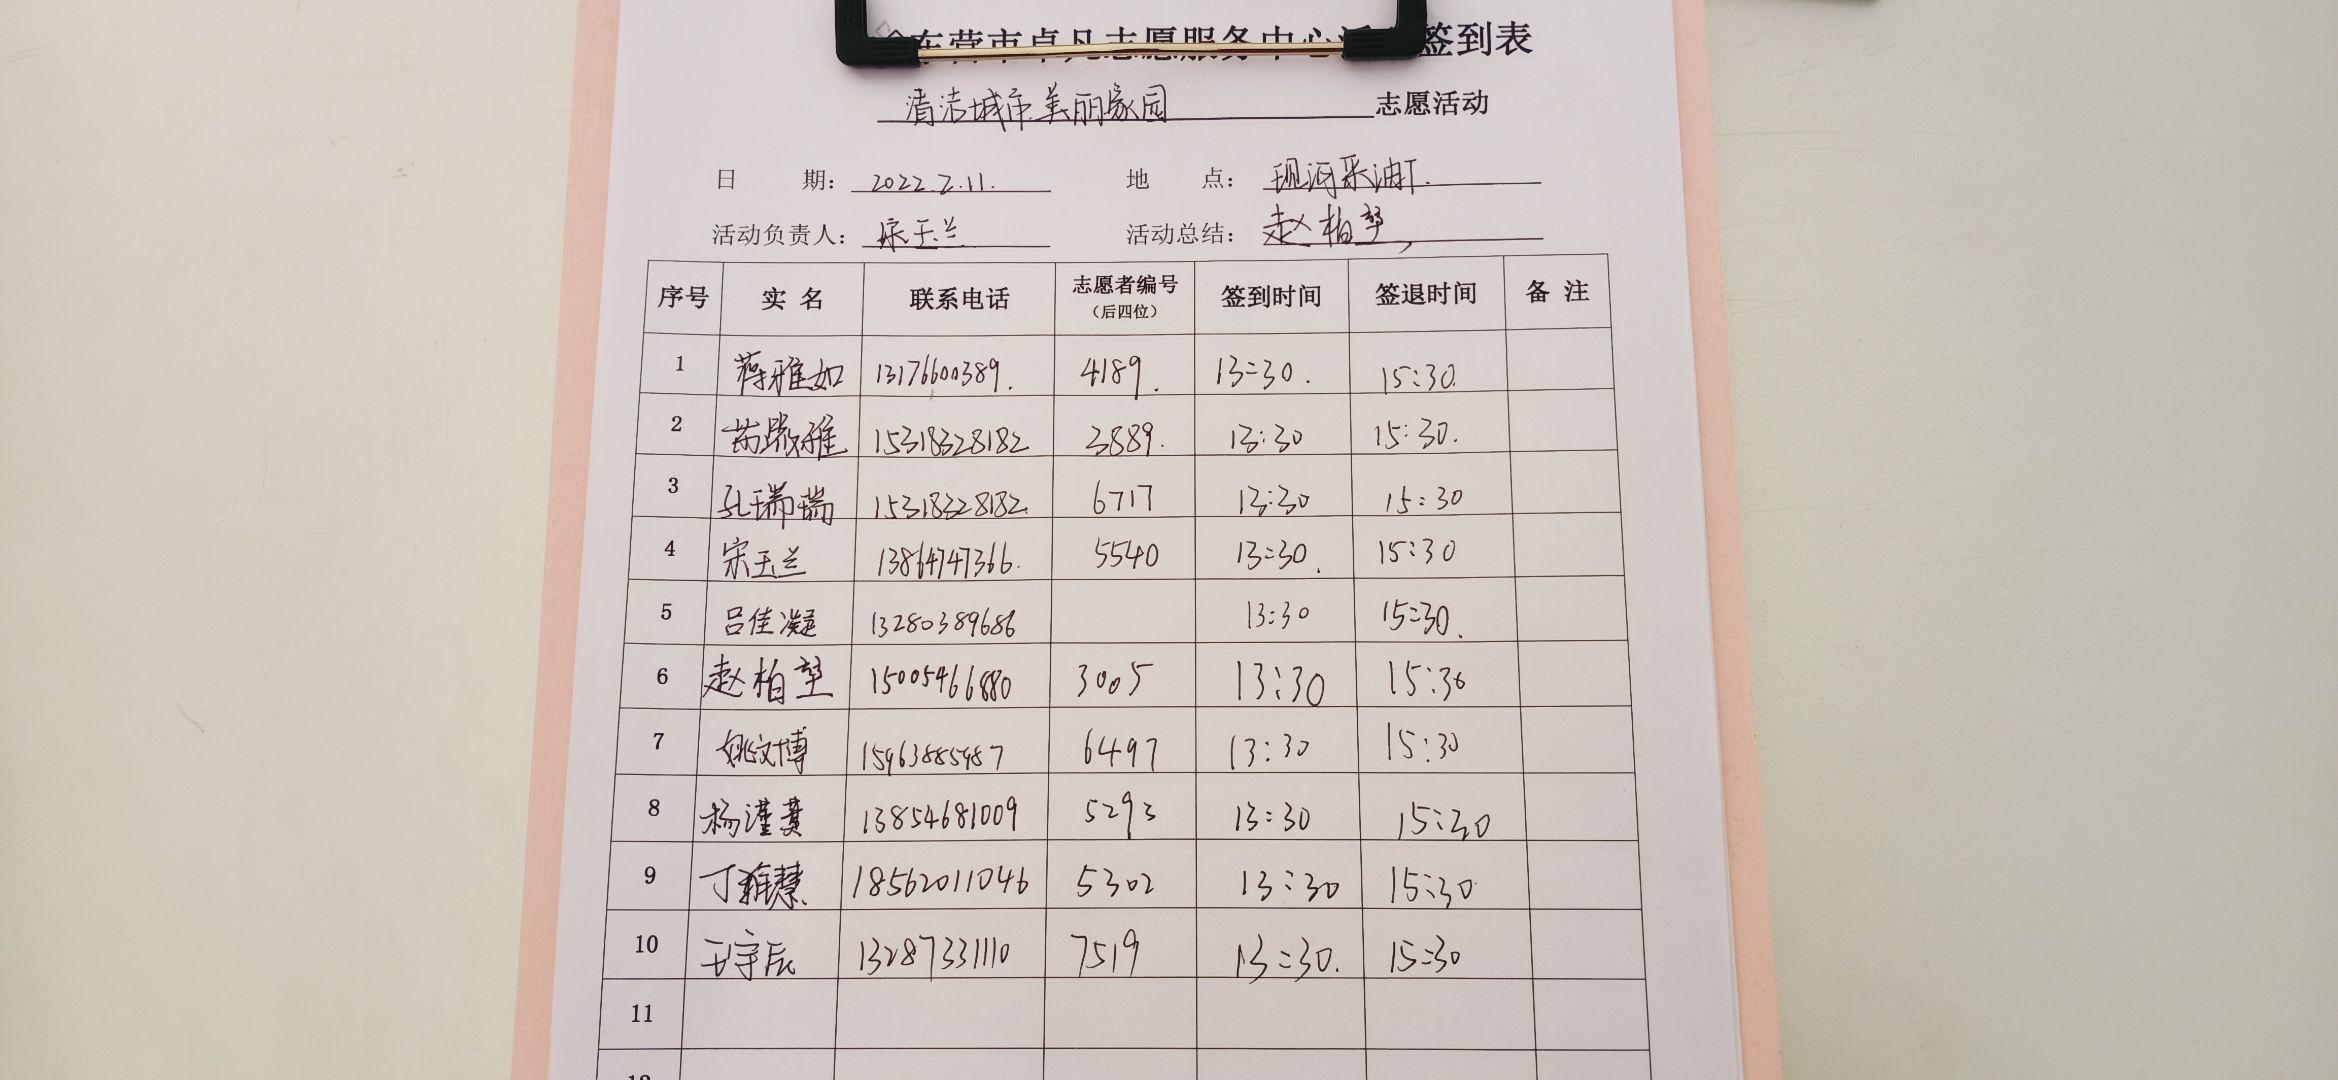 东营市卓凡志愿服务中心活 签到表
清洁城市美丽家园 志愿活动
日 期： 2022.2.11. 地 点： 现河采油厂.
活动负责人： 宋玉兰 活动总结： 赵柏堃
序号 实 名 联系电话 志愿者编号（后四位） 签到时间 签退时间 备 注
1 蒋雅如 13176600389. 4189. 13:30. 15:30.
2 15318328182 3889. 13:30 15:30.
3 孔瑞瑞 15318328182. 6717 13:30 15:30
4 宋玉兰 13864747366. 5540 13:30. 15:30
5 吕佳凝 13280389686 13:30 15:30.
6 赵柏堃 15005466880 3005 13:30 15:30
7 姚文博 15963885987 6497 13:30 15:30
8 杨谨萁 13854681009 5293 13:30 15:30
9 丁雅慧 18562011046 5302 13:30 15:30
10 王宇辰 13287331110 7519 13:30. 15:30
11